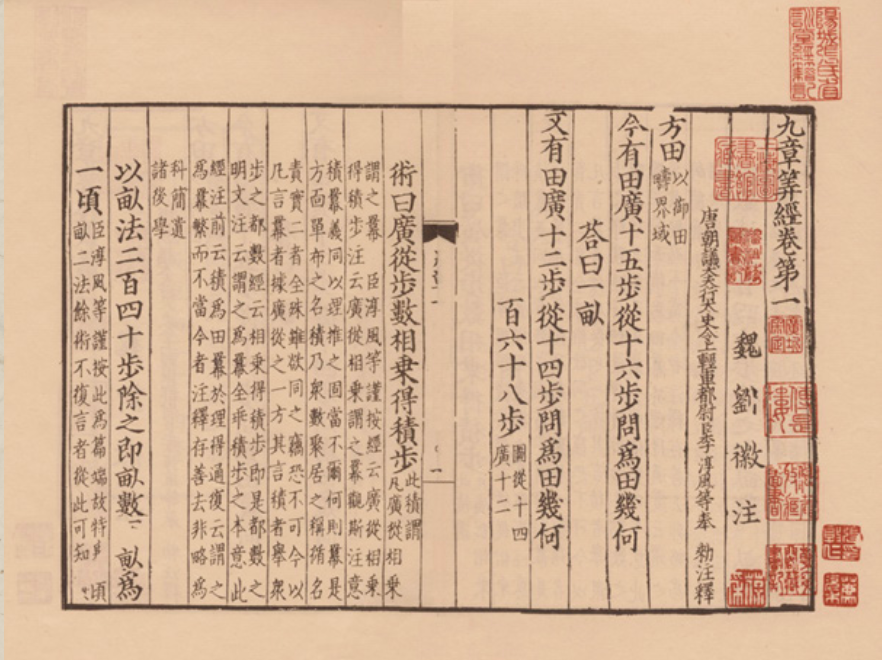 九章筭經卷第一
魏劉徽注
唐朝議大夫行太史令上輕車都尉臣李淳風等奉 勑注釋
方田以御田
疇界域
今有田廣十五步從十六步問爲田幾何
荅曰一畝
又有田廣十二步從十四步問爲田幾何
百六十八步圖從十四
廣十二
術曰廣從步數相乗得積步此積謂
凡廣從相乗
謂之羃 臣淳風等謹按經云廣從相乗
得積步注云廣從相乗謂之羃觀斯注意
積羃義同以理推之固當不爾何則羃是
方面單布之名積乃衆數聚居之稱循名
責實二者全殊雖欲同之竊恐不可今以
凡言羃者據廣從之一方其言積者舉衆
步之都數經云相乗得積步即是都數之
明文注云謂之爲羃全乖積步之本意此
經注前云積爲田羃於理得通復云謂之
爲羃繁而不當今者注釋存善去非略爲
科簡遺
諸後學
以畝法二百四十步除之即畝數 畝爲
一頃臣淳風等謹按此爲篇端故特 頃
畝二法餘術不復言者從此可知